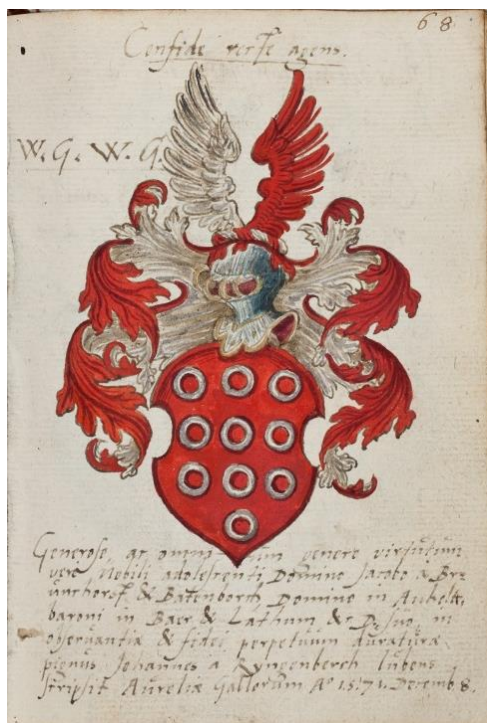 68
Confide recte agens.
W. G. W. G.
Generoso, ac omni genere virtutum
vere Nobili adolescenti Domino Jacobo a Br
unchorst & Batenborch Domino in Anholt.
baroni in Baer & Lathum & in
observantiæ & fidei perpetuum duraturæ
pignus Johannes a Ryngenberch lubens
scripsit Aureliæ Gallorum Aº 1571. Decemb 8.